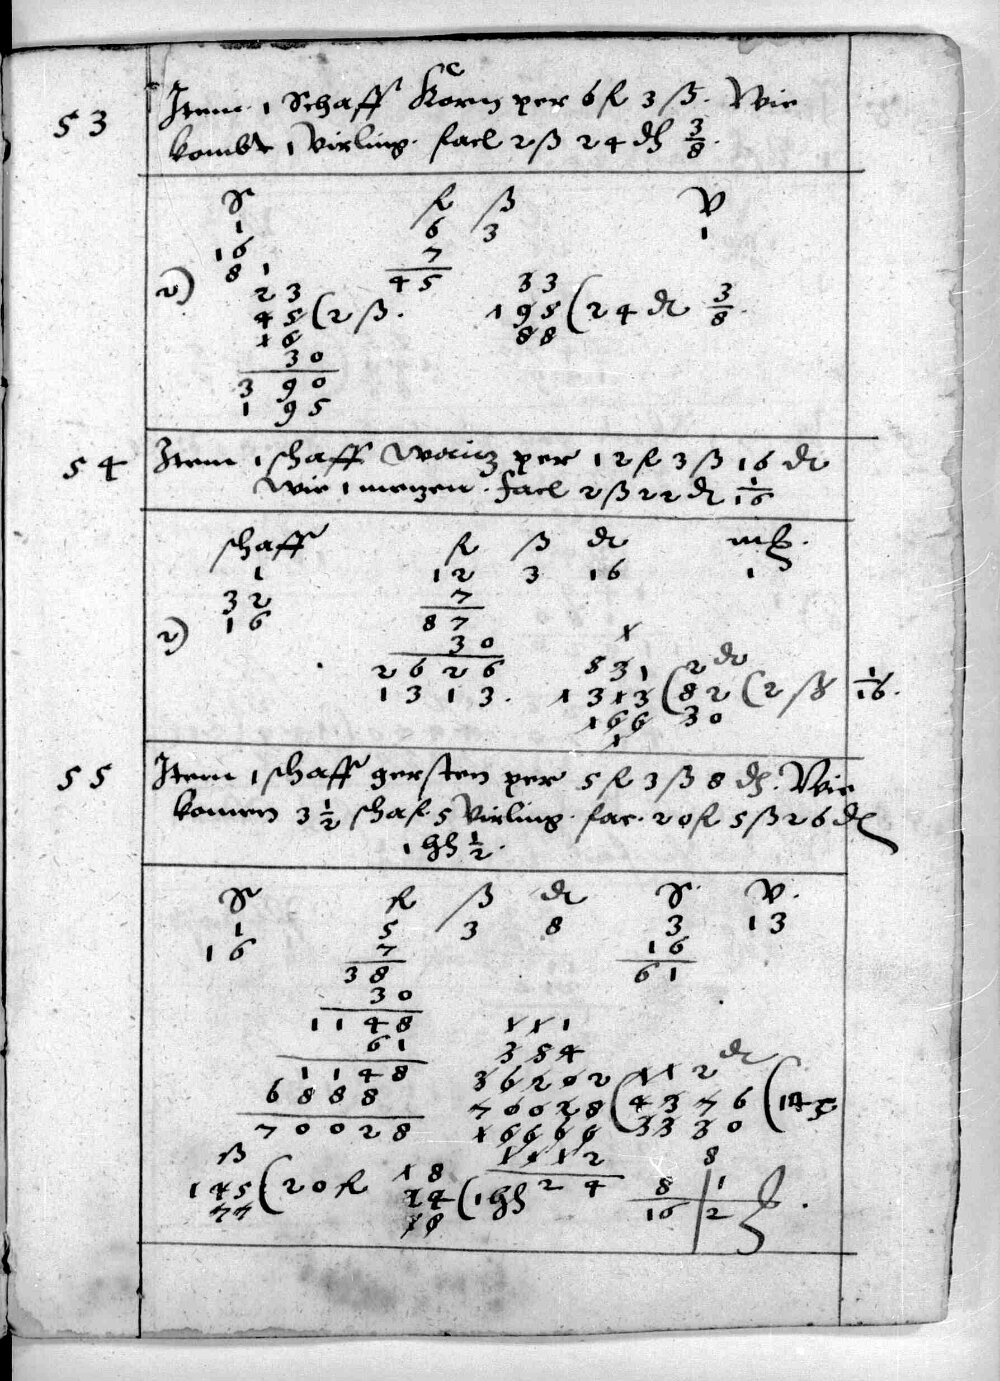 53 Item 1 Schaff Korn per 6 fl 3 ß. Wie
kombt 1 Virling. facl 2 ß 24 dl 3/8.
S fl ß V
1 6 3 1
16 7
8 1 45 33
2) 23
45 (2 ß. 195 (24 dl 3/8.
16 88
30
390
195
54 Item 1 schaff Waitz per 12 fl 3 ß 16 dl
wie 1 metzen. facl 2 ß 22 dl 1/16
schaff fl ß dl mtz.
1 12 3 16 1
32 7
16 87
2) 30
2626 531 2 dl
1313. 1313 (82 (2 ß 1/16.
166 30
1
55 Item 1 schaff gersten per 5 fl 3 ß 8 dl. Wie
komen 3 1/2 schaf. 5 Virling. fac. 20 fl 5 ß 26 dl
1 hl 1/2.
S fl ß dl S V.
1 5 3 8 3 13
16 7 16
38 61
30
1148 111
61 354
1148 36202 112 dl
6888 70028 (4376 (145
70028 16666 3330
ß 1112
145 (20 fl 18 24 8 8 1
77 24 (1 hl 16 2